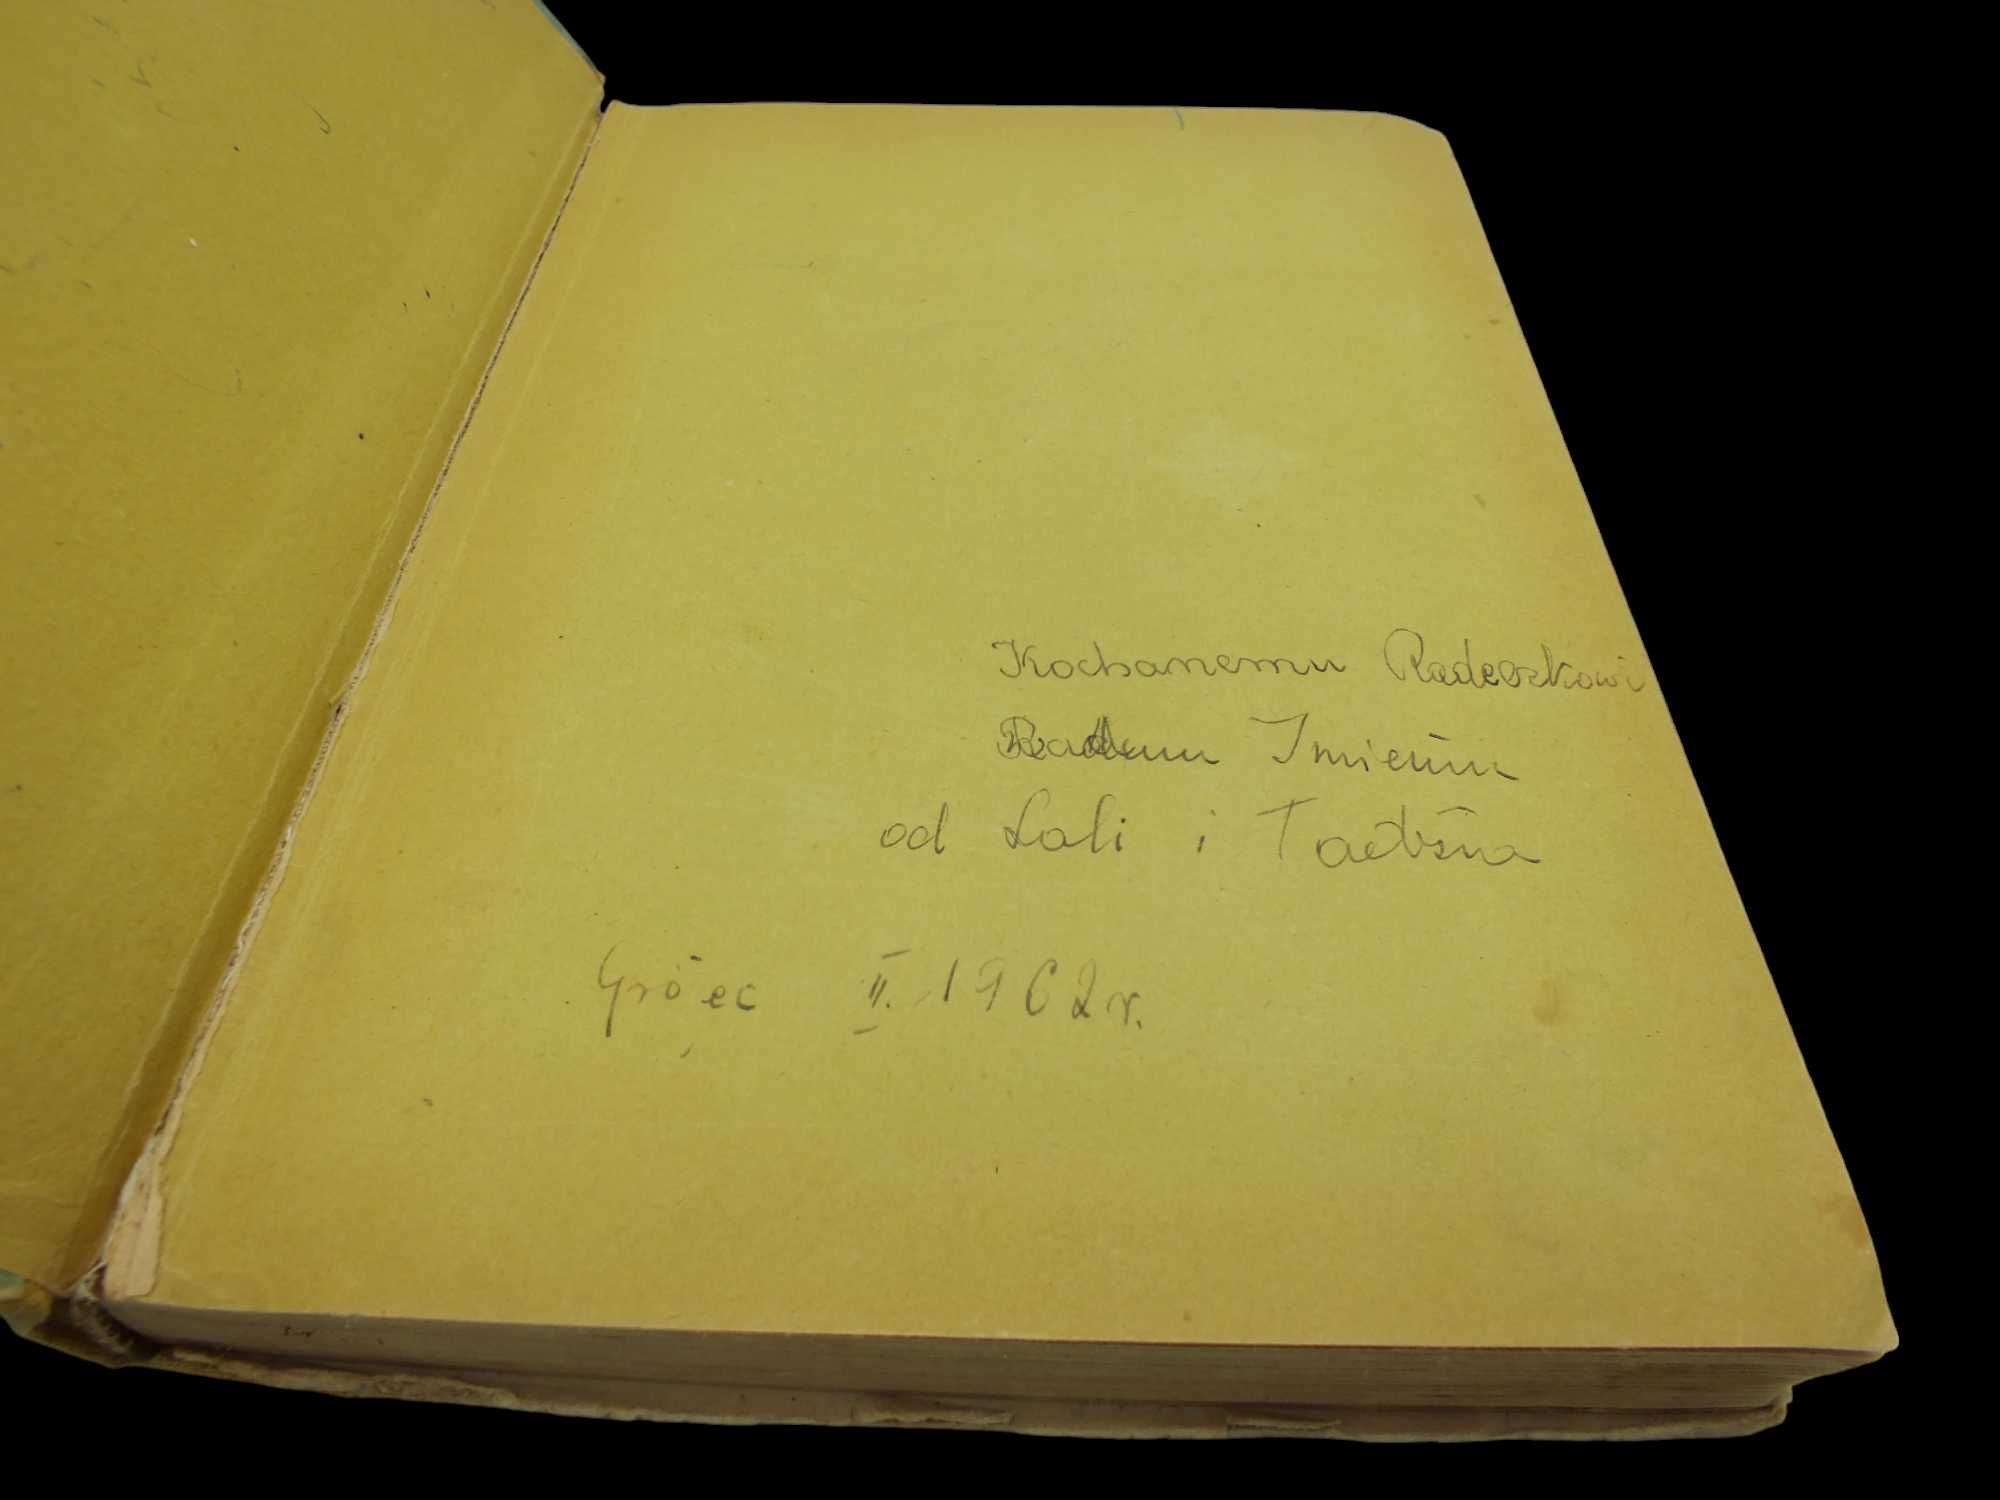 Kochanemu Radeczkowi
Imienin
od Lali i Tadzia
Grójec II. 1962 r.